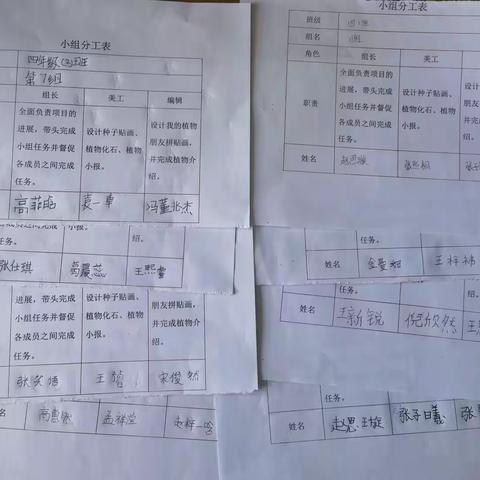 小组分工表
四年级(3)班
第1组
组长 美工 编辑
全面负责项目的进展，带头完成小组任务并督促各成员之间完成任务。
设计种子贴画、植物化石、植物小报。
设计我的植物朋友拼贴画，并完成植物介绍。
高菲 袁一卓 冯董兆杰
小报。 绍。
任务。
张仕琪 葛晨蕊 王熙雯
进展，带头完成小组任务并督促各成员之间完成任务。
设计种子贴画、植物化石、植物小报。
朋友拼贴画，并完成植物介绍。
张家 王 宋俊然
姓名 高惠 孟祥 赵梓一
小组分工表
班级
组名
角色 组长 美工
职责
全面负责项目的进展，带头完成小组任务并督促各成员之间完成任务。
设计种子贴画、植物化石、植物小报。
设计朋友并完绍。
姓名 赵思
任务。 绍。
姓名 金曼 王梓
任务。 绍。
姓名 王新锐 倪欣然 王
任务。 绍。
姓名 赵思王旋 张子曰羲 张